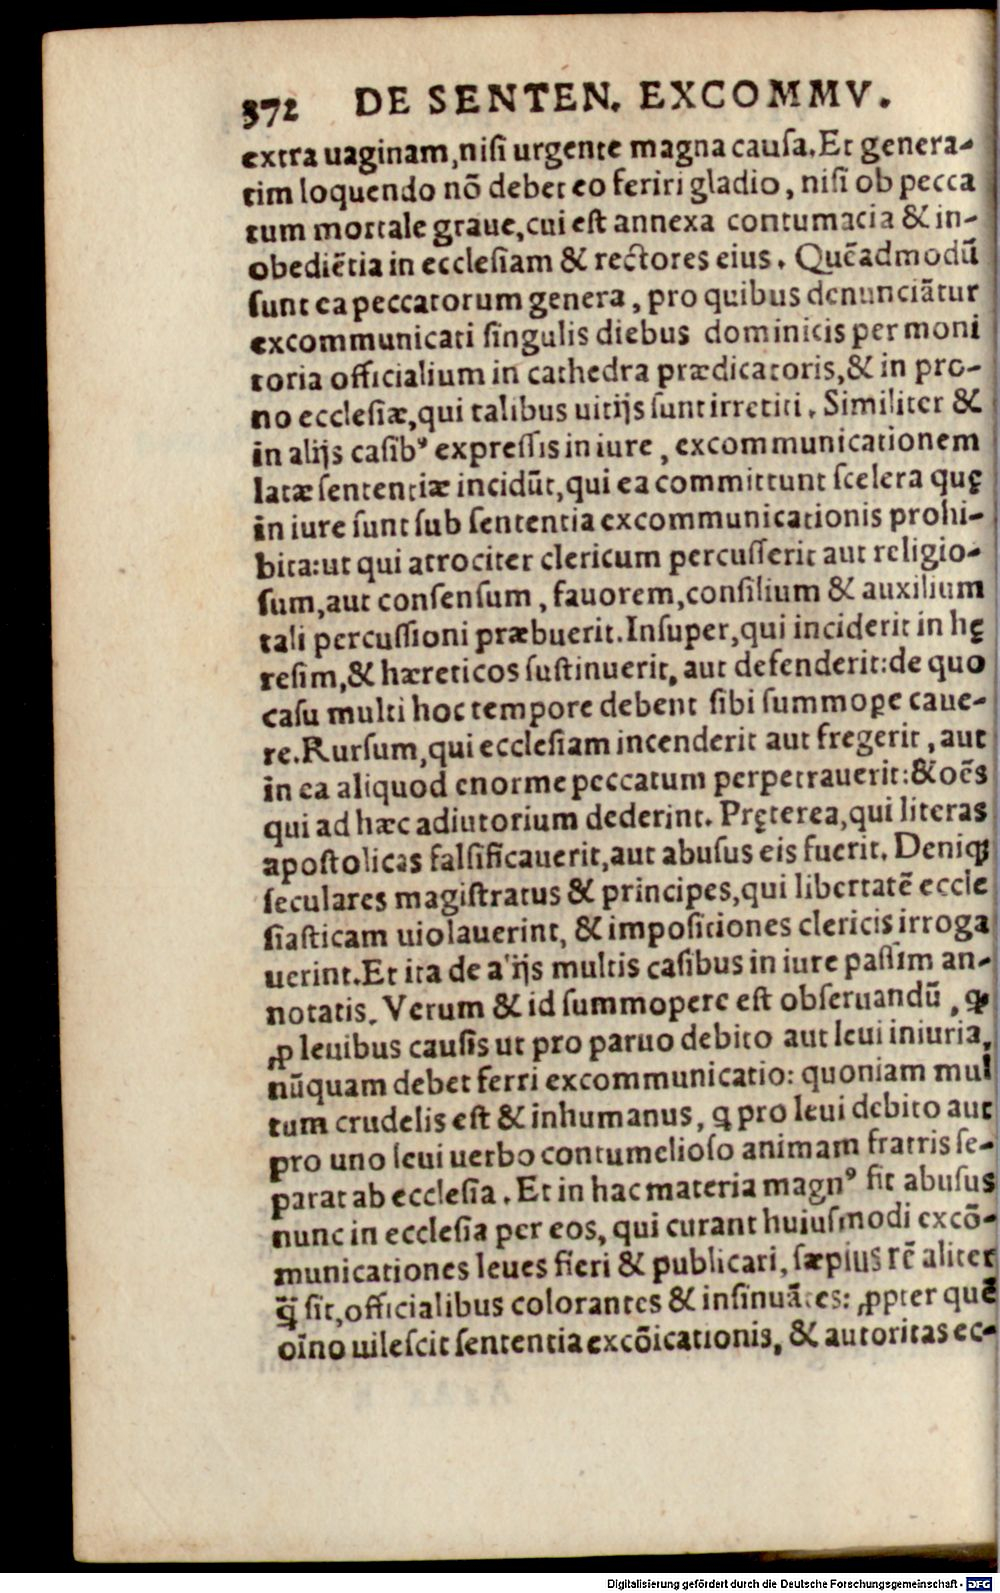 372 DE SENTEN. EXCOMMV.
extra uaginam, niſi urgente magna cauſa. Et genera-
tim loquendo nõ debet eo feriri gladio, niſi ob pecca
tum mortale graue, cui eſt annexa contumacia & in-
obediẽtia in eccleſiam & rectores eius. Quẽadmodũ
ſunt ea peccatorum genera, pro quibus denunciãtur
excommunicati ſingulis diebus dominicis per moni
toria officialium in cathedra prædicatoris, & in pro-
no eccleſiæ, qui talibus uitijs ſunt irretiti. Similiter &
in alijs caſibꝰ expreſſis in iure, excommunicationem
latæ ſententiæ incidũt, qui ea committunt ſcelera quę
in iure ſunt ſub ſententia excommunicationis prohi-
bita: ut qui atrociter clericum percuſſerit aut religio-
ſum, aut conſenſum, fauorem, conſilium & auxilium
tali percuſſioni præbuerit. Inſuper, qui inciderit in hę
reſim, & hæreticos ſuſtinuerit, aut defenderit: de quo
caſu multi hoc tempore debent ſibi ſummoꝑe caue-
re. Rurſum, qui eccleſiam incenderit aut fregerit, aut
in ea aliquod enorme peccatum perpetrauerit: & oẽs
qui ad hæc adiutorium dederint. Pręterea, qui literas
apoſtolicas falſificauerit, aut abuſus eis fuerit. Deniqꝫ
ſeculares magiſtratus & principes, qui libertatẽ eccle
ſiaſticam uiolauerint, & impoſitiones clericis irroga
uerint. Et ita de alijs multis caſibus in iure paſſim an-
notatis. Verum & id ſummopere eſt obſeruandũ, ꝙ
ꝓ leuibus cauſis ut pro paruo debito aut leui iniuria,
nũquam debet ferri excommunicatio: quoniam mul
tum crudelis eſt & inhumanus, q pro leui debito aut
pro uno leui uerbo contumelioſo animam fratris ſe-
parat ab eccleſia. Et in hac materia magnꝰ fit abuſus
nunc in eccleſia per eos, qui curant huiuſmodi excõ-
municationes leues fieri & publicari, ſæpius rẽ aliter
q̃ ſit, officialibus colorantes & inſinuãtes: ꝓpter quẽ
oĩno uileſcit ſententia excõicationis, & autoritas ec-
Digitalisierung gefördert durch die Deutsche Forschungsgemeinschaft - DFG